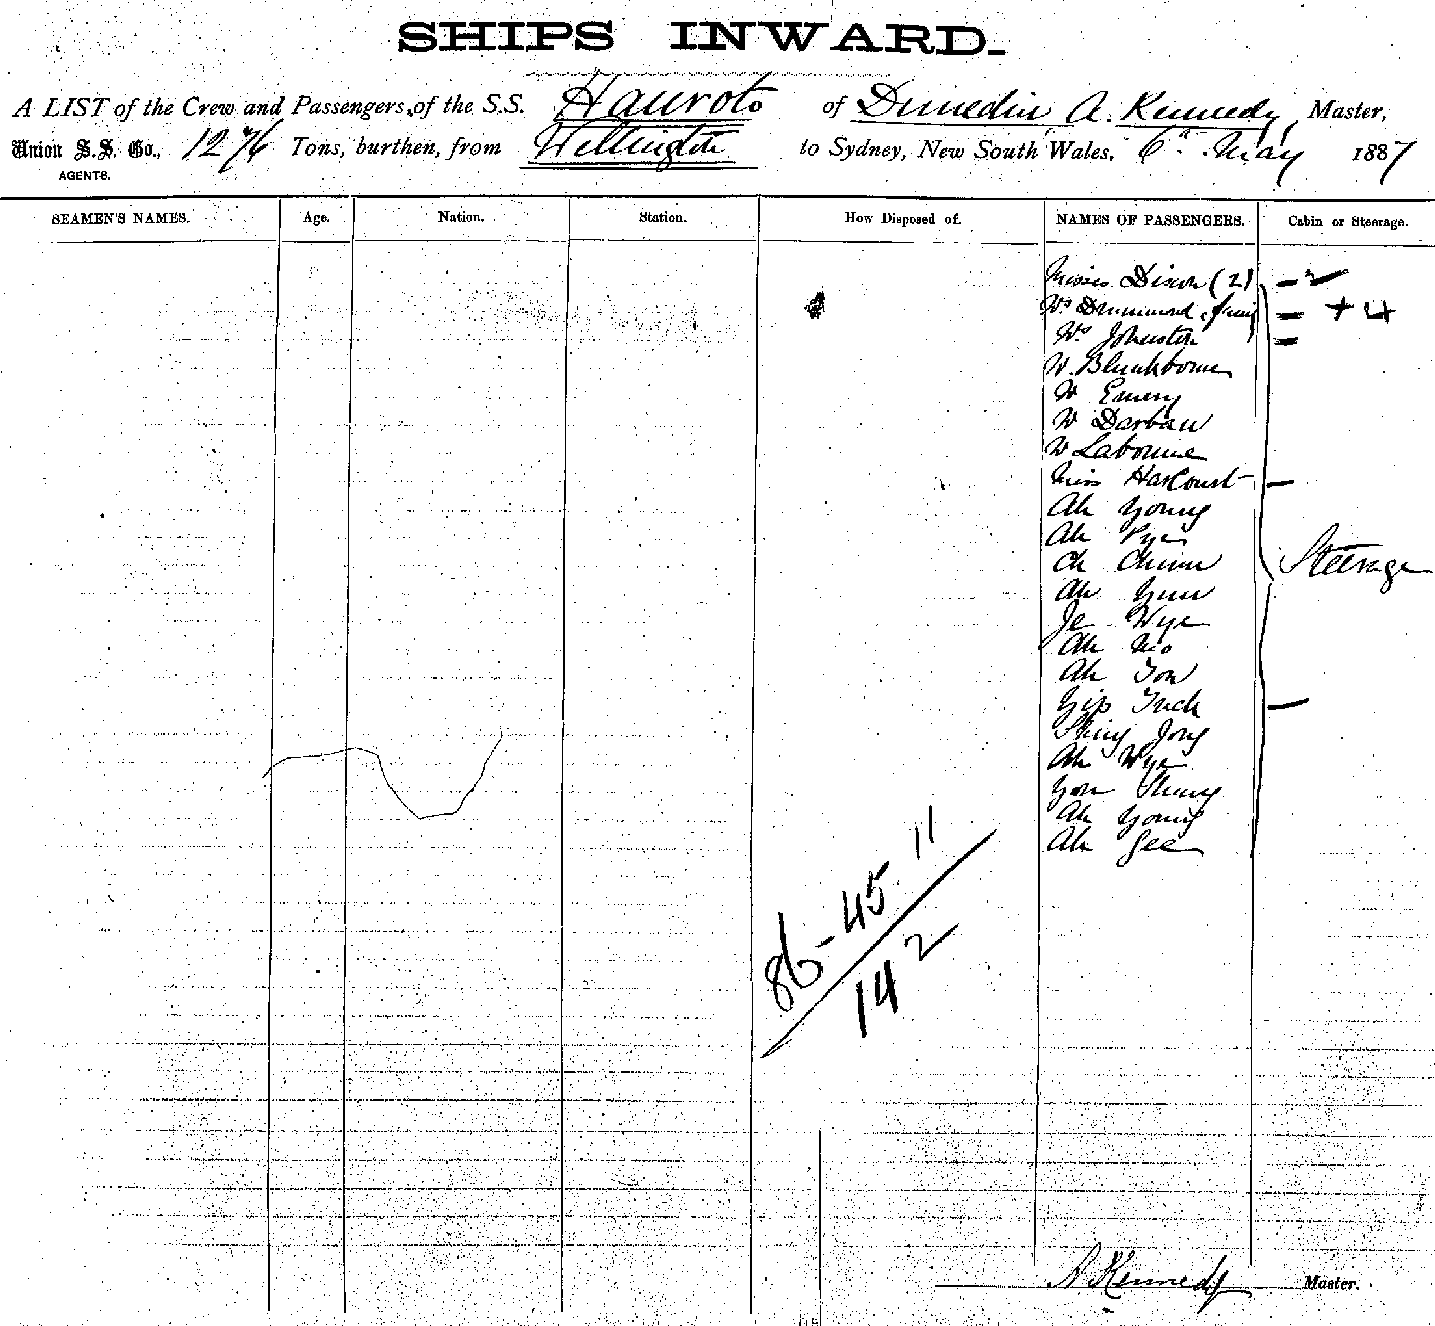 SHIPS INWARD.
A LIST of the Crew and Passengers, of the S.S. Hauroto of Dunedin, A. Kennedy, Master,
Union S.S. Co., 1276 Tons, burthen, from Wellington to Sydney, New South Wales, 6th May 1887
AGENTS.
SEAMEN'S NAMES. Age. Nation. Station. How Disposed of. NAMES OF PASSENGERS. Cabin or Steerage.
Misses Dixon (2)
Drummond + 4
Johnston
W. Blackbourn
W Emery
W Darbau
W Labourne
Miss Harcourt
Ah Young
Ah Pye
Ah Chinn Steerage
Ah Yuu
Je Wye
Ah Mo
Ah Ton
Gip Tuck
Shing Jong
Ah Wye
Yon Shung
Ah Young
Ah Gee
86-45. 11
142
A Kennedy Master.